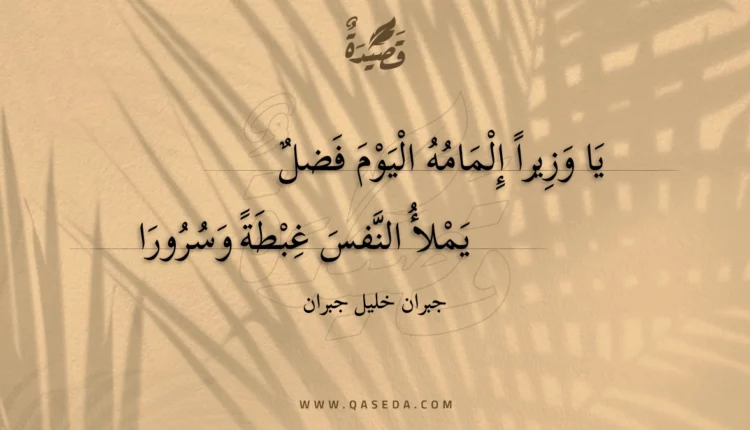 قَصِيدَةٌ
يَا وَزِيراً إِلْمَامُهُ الْيَوْمَ فَضلٌ
يَمْلأُ النَّفسَ غِبْطَةً وَسُرُورَا
جبران خليل جبران
WWW.QASEDA.COM